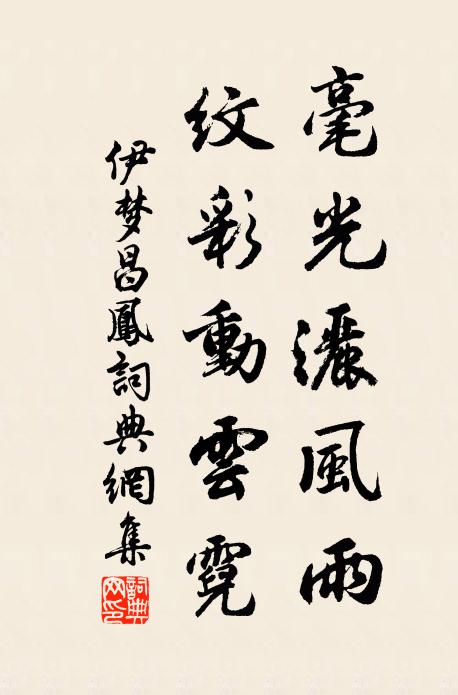 毫光灑風雨
紋彩動雲霓
伊梦昌鳳詞典網集
詞典網印